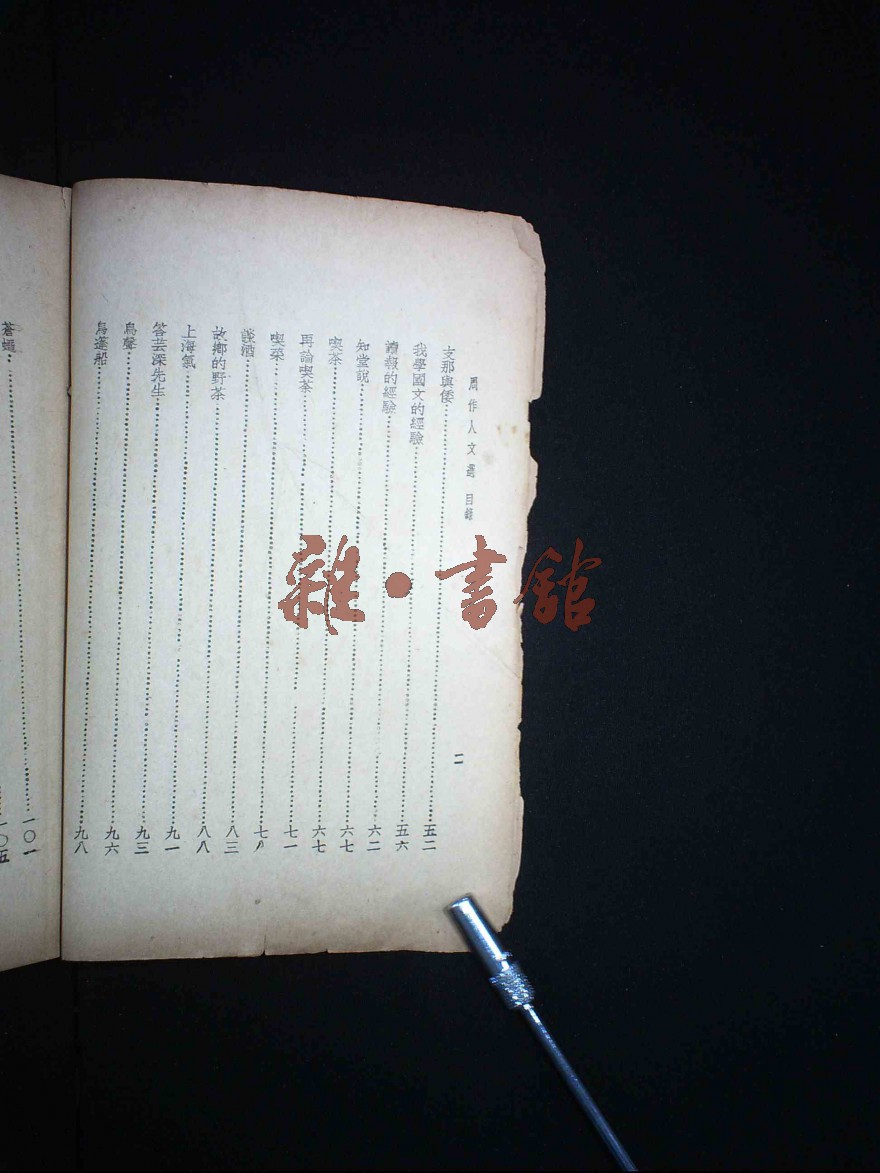 周作人文選 目錄
二
支那與倭……五二
我學國文的經驗……五六
讀報的經驗……六二
知堂說……六七
喫茶……六七
再論喫茶……七一
喫菜……七八
談酒……八三
故鄉的野茶……八八
上海氣……九一
答芸深先生……九三
鳥聲……九六
烏篷船……九八
蒼蠅……一〇一
一〇五
雜·書館